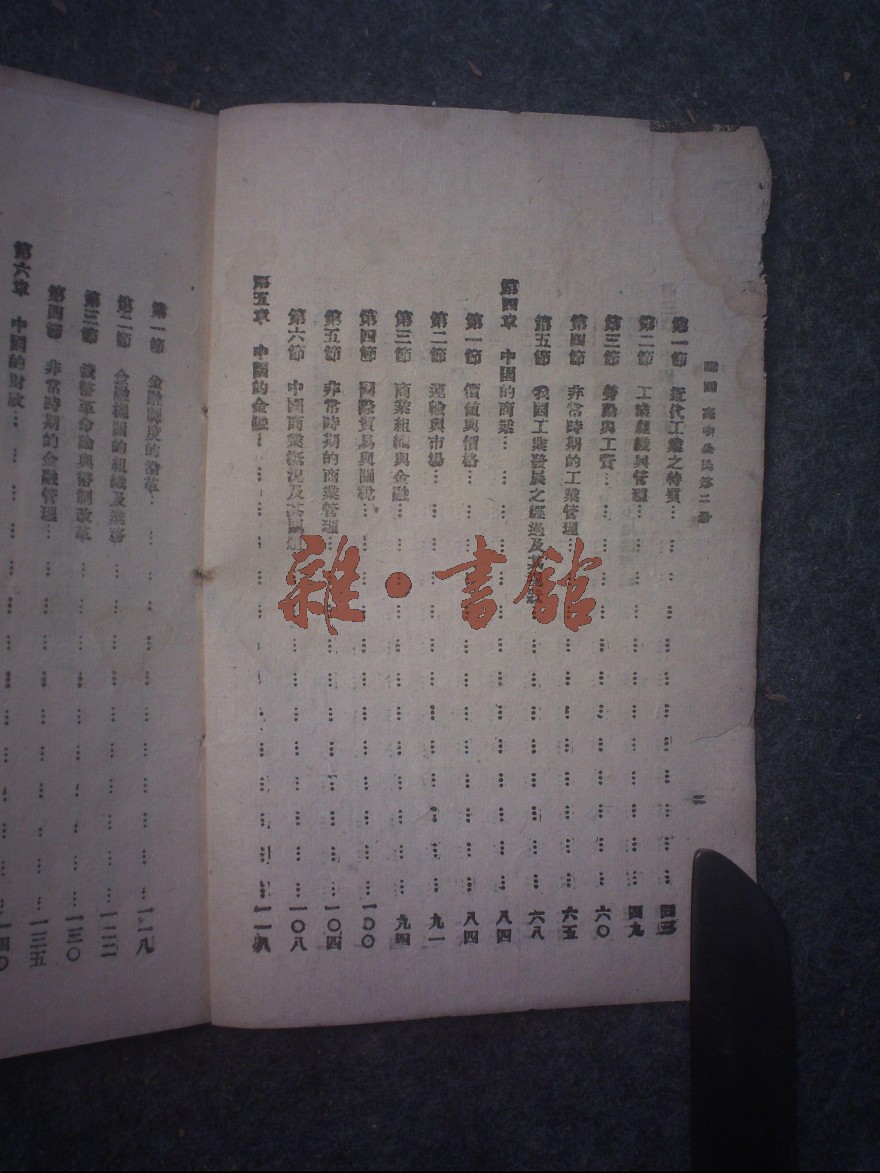 高中公民第二冊
二
第一節 近代工業之特質… … … … … … … 四三
第二節 工業組織與管理… … … … … … … 四九
第三節 勞動與工資… … … … … … … 六〇
第四節 非常時期的工業管理… … … … … … … 六五
第五節 我國工業發展之經過及其 … … … … … 六八
第四章 中國的商業… … … … … … … 八四
第一節 價值與價格… … … … … … … 八四
第二節 運輸與市場… … … … … … … 九一
第三節 商業組織與金融… … … … … … … 九四
第四節 國際貿易與關稅… … … … … … … 一〇〇
第五節 非常時期的商業管理… … … … … … … 一〇四
第六節 中國商業概況及其 … … … … … 一〇八
第五章 中國的金融… … … … … … … 一一八
第一節 金融制度的沿革… … … … … … … 一一八
第二節 金融機關的組織及業務 … … … … … … 一二二
第三節 錢幣革命論與幣制改革 … … … … … … 一三〇
第四節 非常時期的金融管理… … … … … … … 一三五
第六章 中國的財政… … … … … … … 一四〇
雜·書館